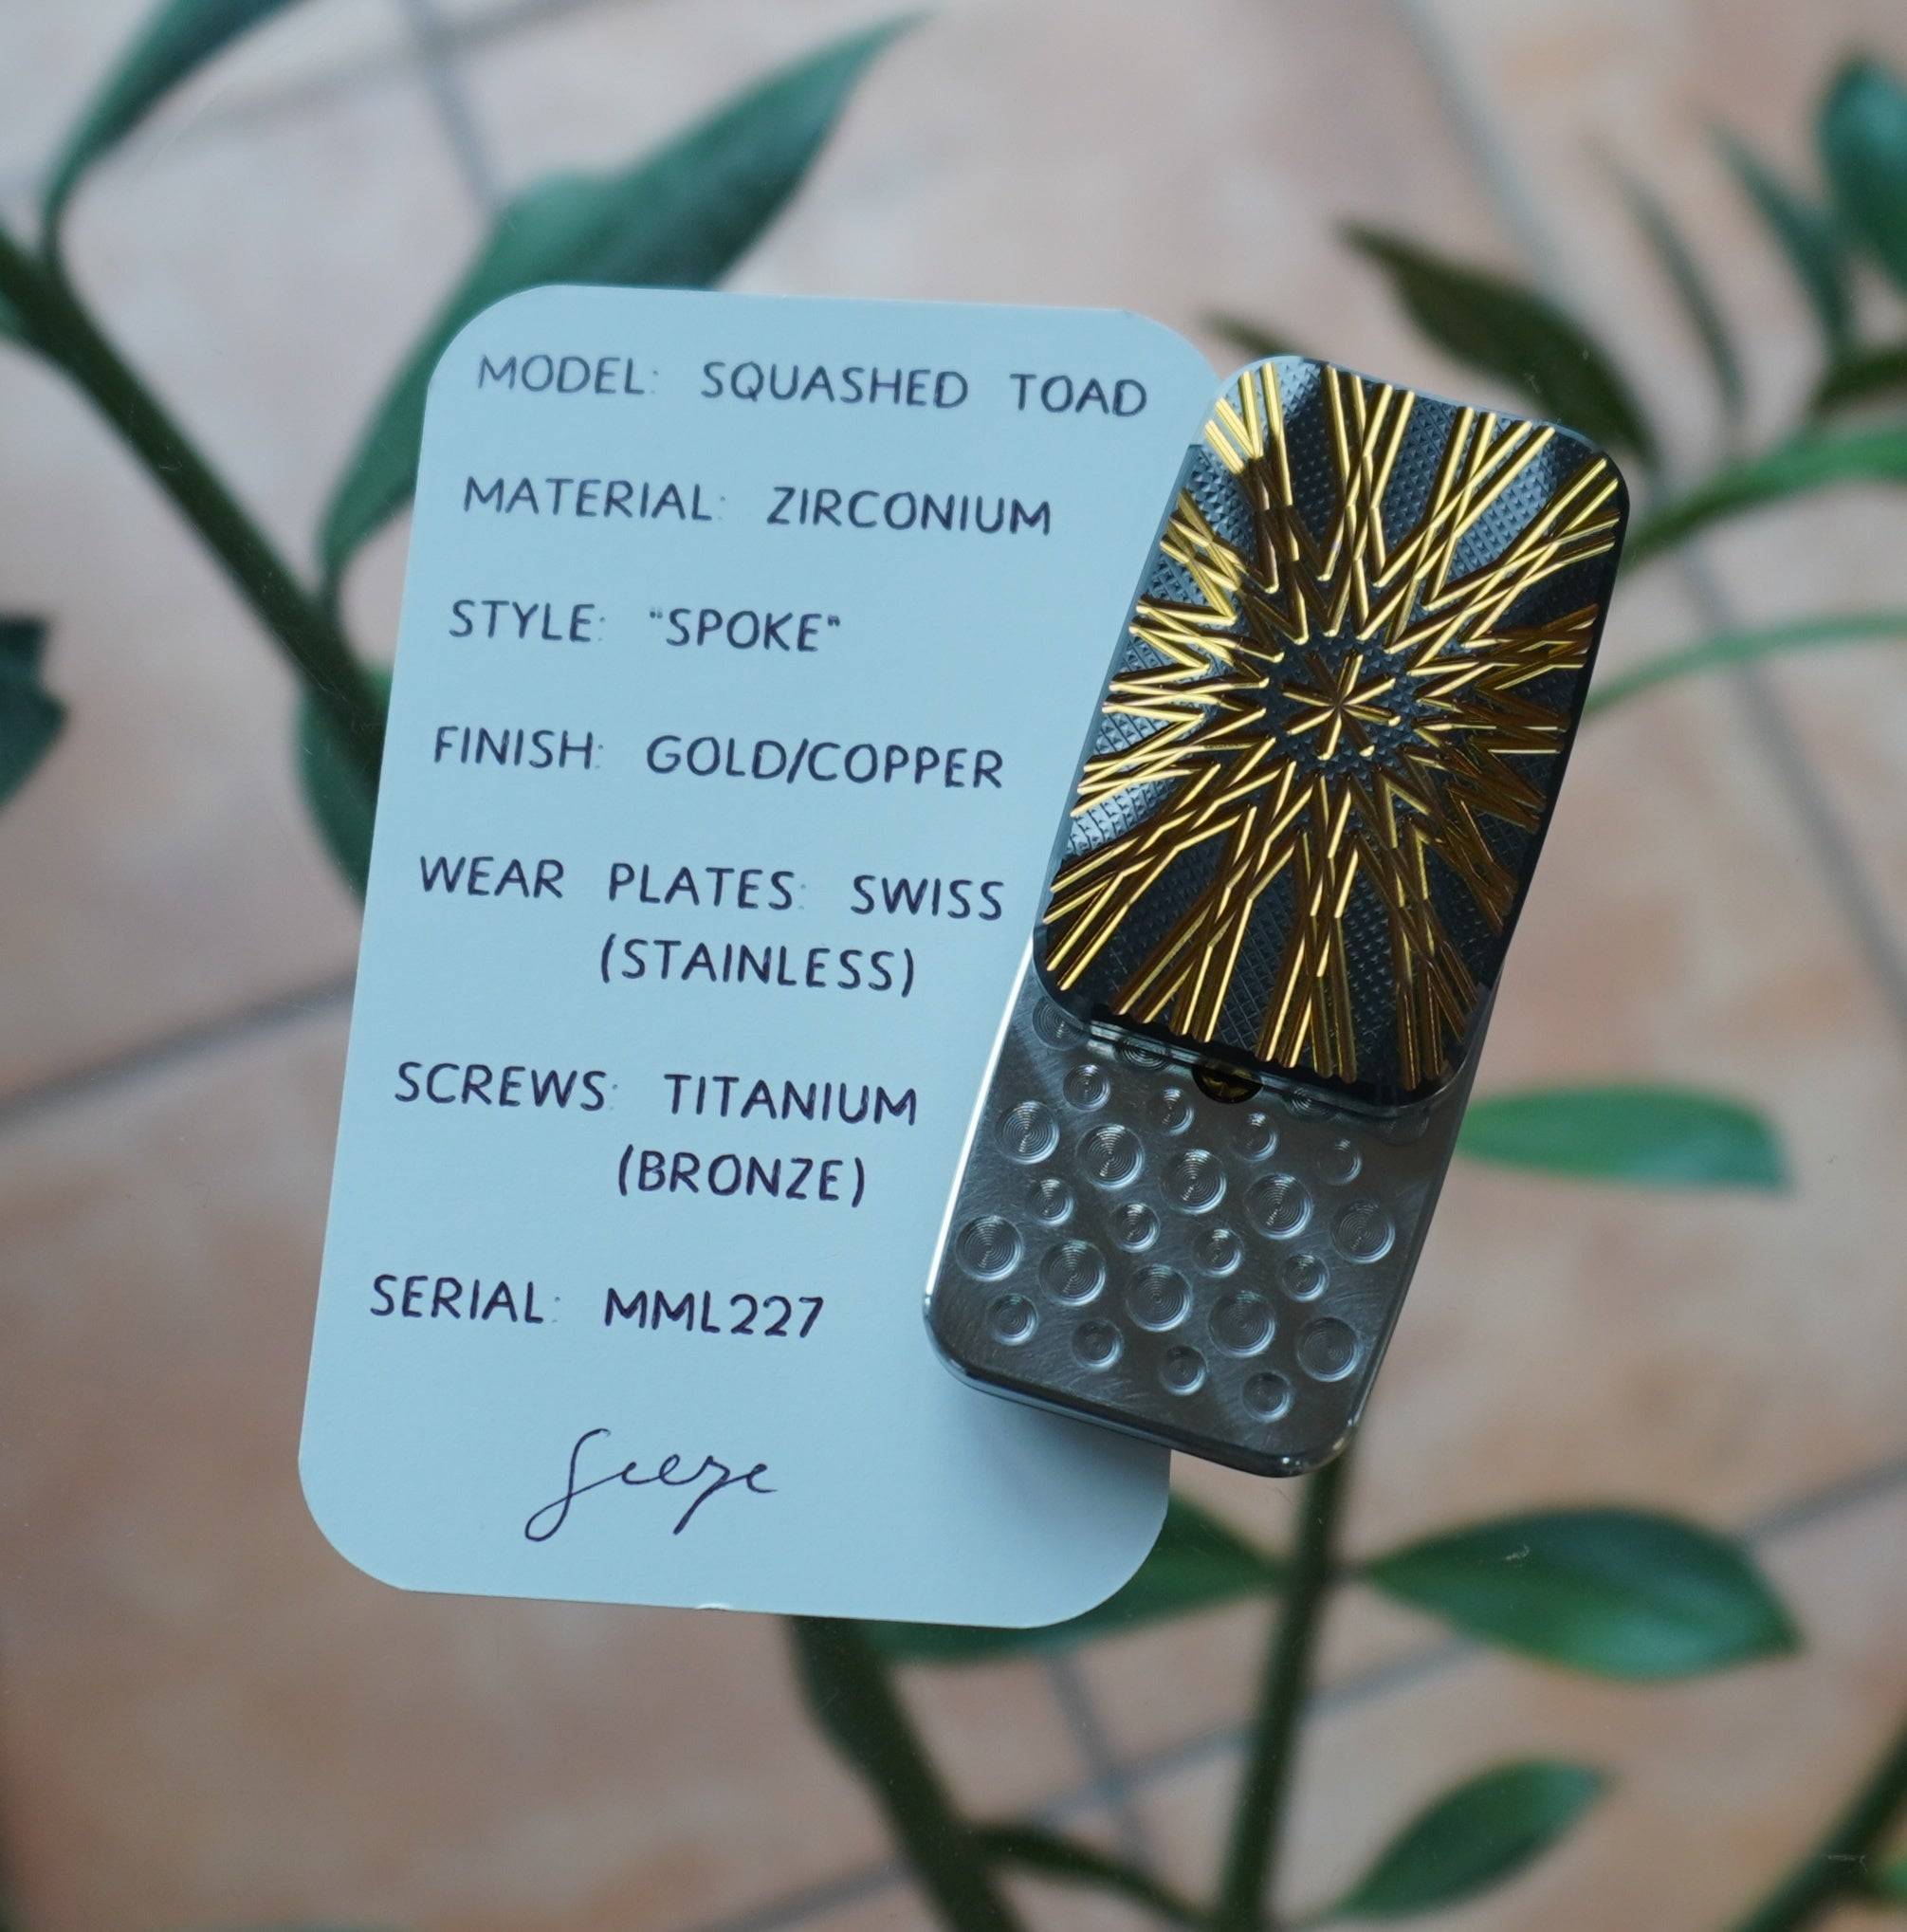 MODEL: SQUASHED TOAD
MATERIAL: ZIRCONIUM
STYLE: "SPOKE"
FINISH: GOLD/COPPER
WEAR PLATES: SWISS
(STAINLESS)
SCREWS: TITANIUM
(BRONZE)
SERIAL: MML227